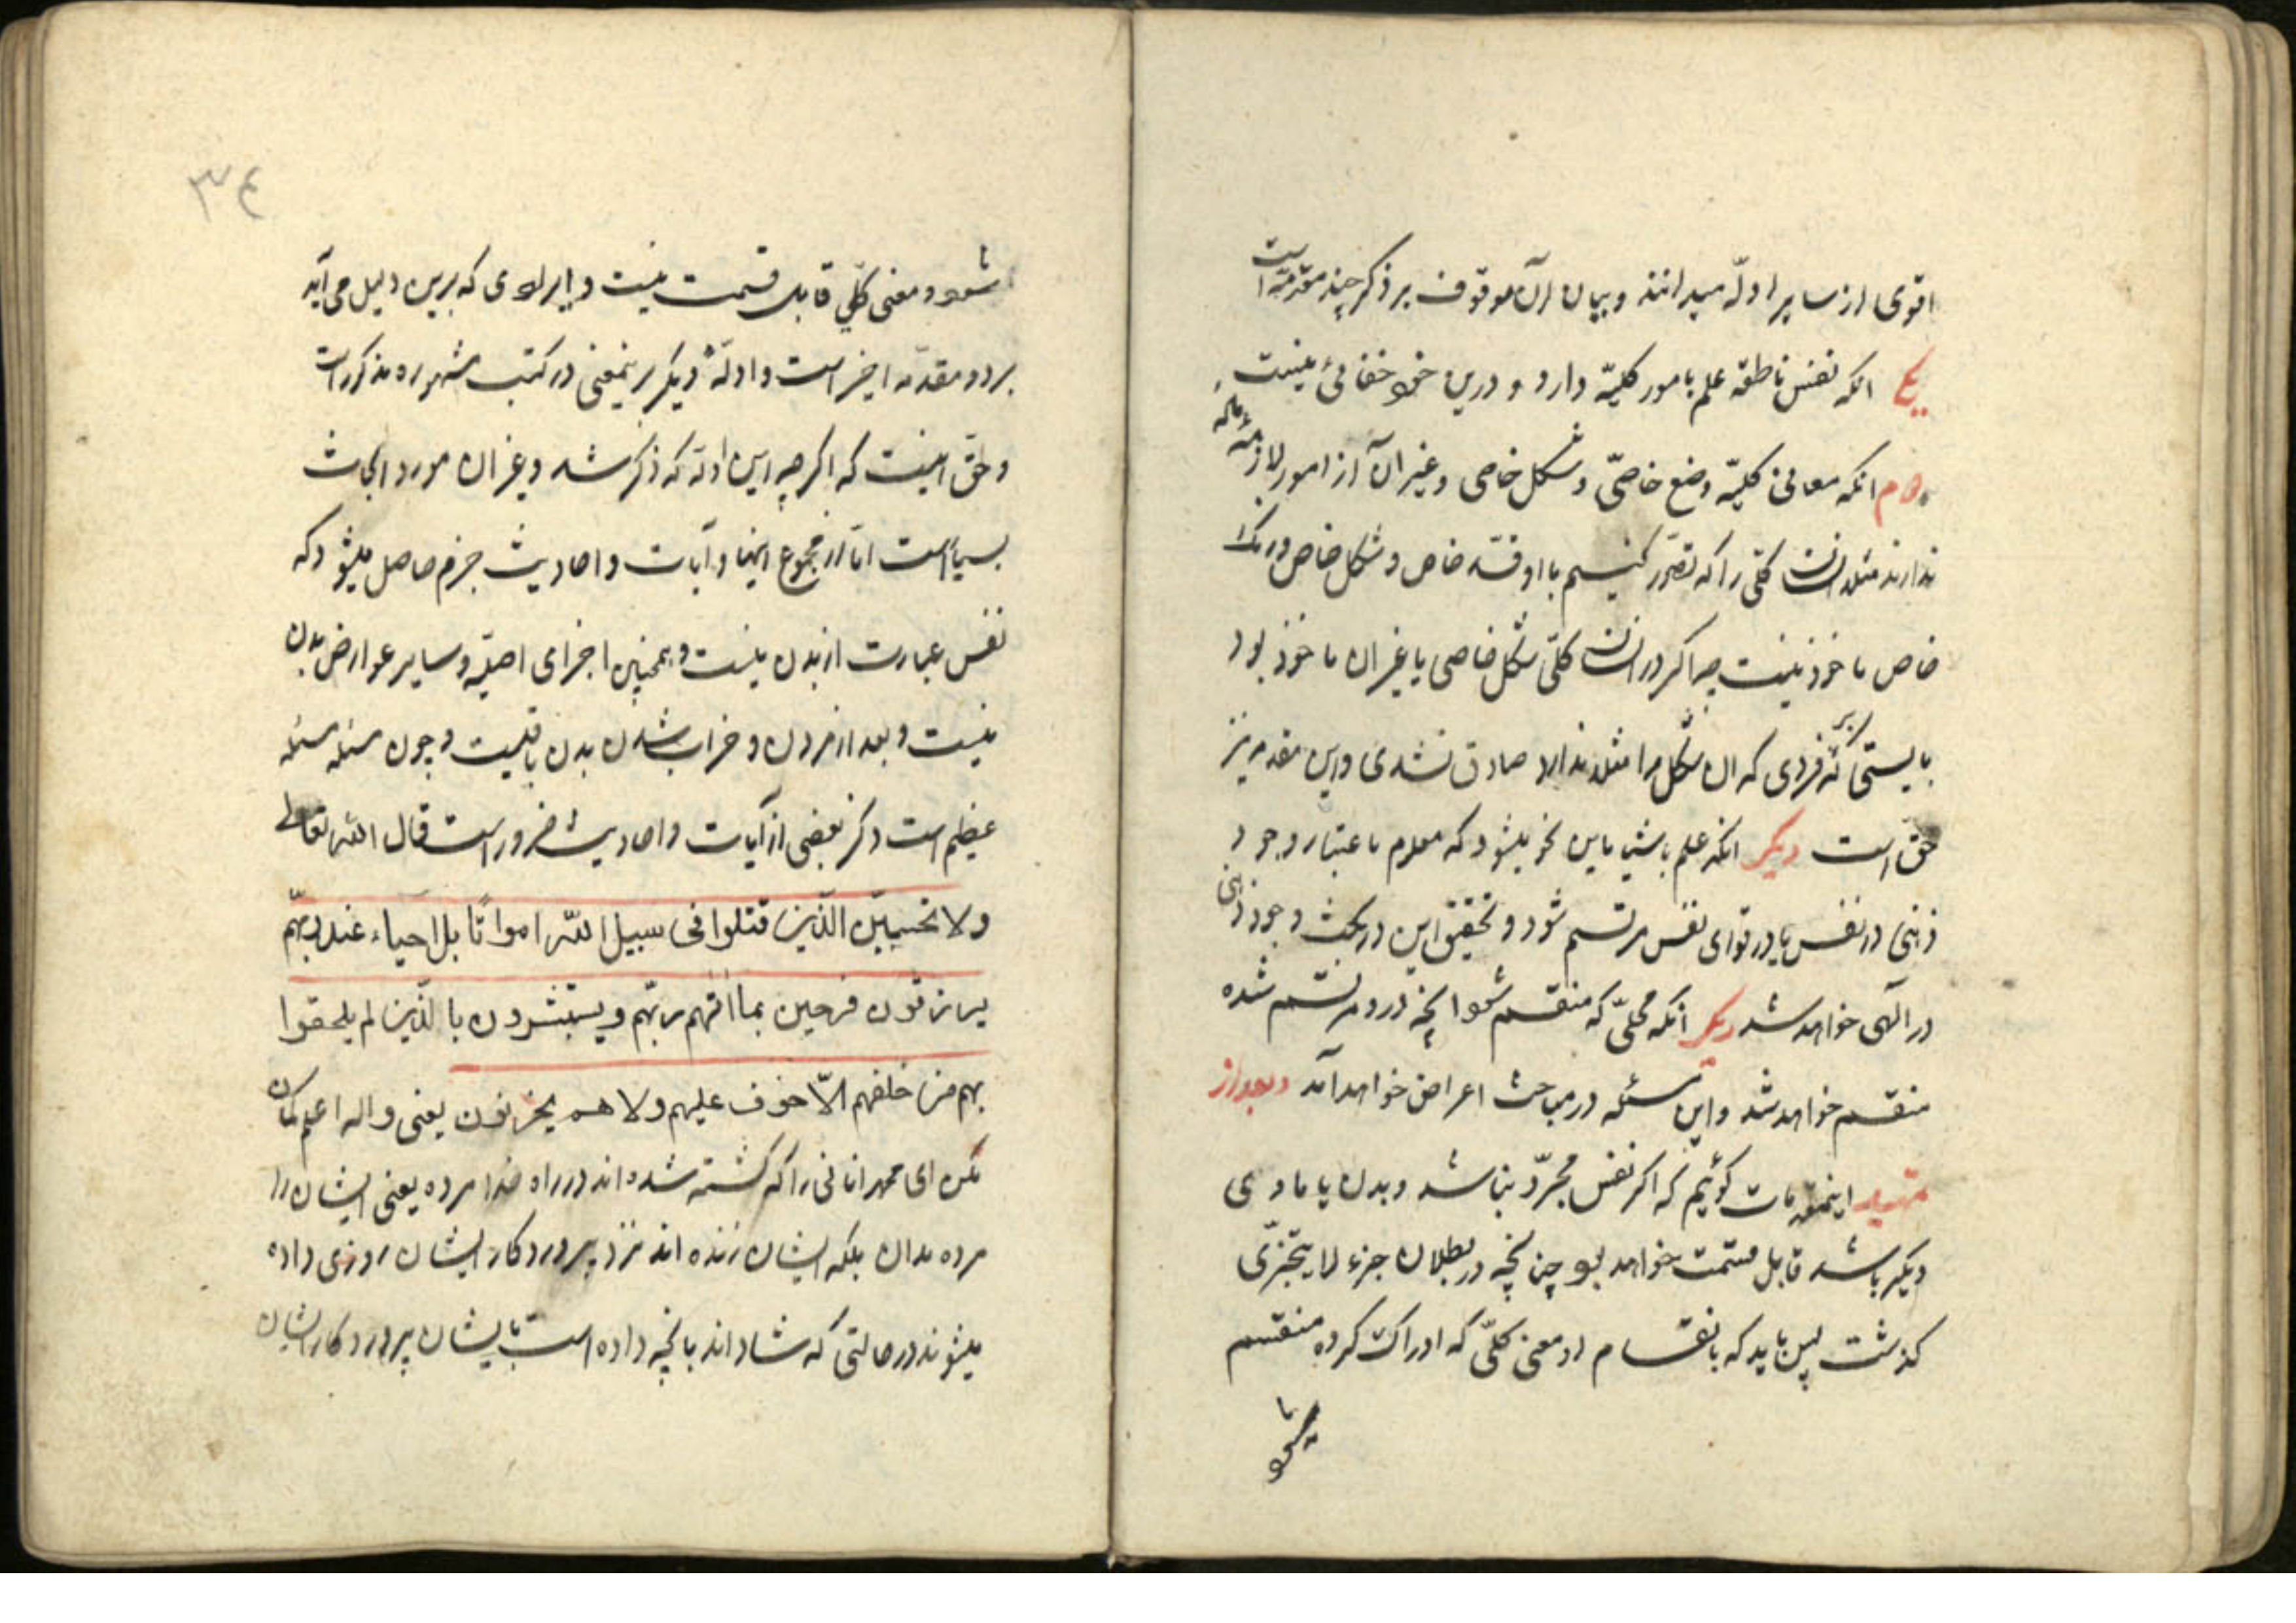 اقوی از سایر ادلّه میدانند و بیان آن موقوف بر ذکر چند مقدمه است
یکی انکه نفس ناطقه علم بامور کلیّه دارد و درین خود خفائی نیست
دوم انکه معانی کلیّه وضع خاصّی و شکل خاصی و غیر آن از امور لازمهٔ مادّه
ندارند مثلا انسان کلّی را که تصوّر کنیم با او قدّ خاص و شکل خاص و رنگ
خاص ماخوذ نیست چه اگر در انسان کلّی شکل خاصی یا غیر ان ماخوذ بود
بایستی که بر فردی که ان شکل را مثلا ندارد صادق نشدی و این مقدمه نیز
حق است دیگر انکه علم باشیا باین نحو میشود که معلوم باعتبار وجود
ذهنی در نفس یا در قوای نفس مرتسم شود و تحقیق این در بحث وجود ذهنی
در الهی خواهد شد دیگر انکه محلّی که منقسم شود انچه درو مرتسم شده
منقسم خواهد شد و این مسئله در مباحث اعراض خواهد آمد و بعد از
تمهید اینمقدمات گوئیم که اگر نفس مجرّد نباشد و بدن یا مادی
دیگر باشد قابل قسمت خواهد بود چنانچه در بطلان جزء لا یتجزّی
گذشت پس باید که بانقسام او معنی کلّی که ادراک کرده منقسم
شود
٣٤
شود و معنی کلّی قابل قسمت نیست و ایرادی که برین دلیل می آید
بر دو مقدّمه اخیر است و ادلّهٔ دیگر برینمعنی در کتب مشهوره مذکور است
و حق اینست که اگرچه این ادلّه که ذکر شد و غیر ان مورد ابحاث
بسیار است امّا از مجموع اینها و آیات و احادیث جزم حاصل میشود که
نفس عبارت از بدن نیست و همچنین اجزای اصلیّه و سایر عوارض بدن
نیست و بعد از مردن و خراب شدن بدن باقیست و چون مسئله مسئله
عظیم است ذکر بعضی از آیات و احادیث ضرور است قال الله تعالی
ولا تحسبنّ الّذین قتلوا فی سبیل اللّه امواتًا بل احیاء عند ربهّم
یرزقون فرحین بما اتهم ربّهم ویستبشرون با لّذین لم یلحقوا
بهم من خلفهم الاّ خوف علیهم ولا هم یحزنون یعنی والله اعلم گمان
مکن ای محمد انانی را که کشته شده اند در راه خدا مرده یعنی ایشان را
مرده مدان بلکه ایشان زنده اند نزد پروردکار ایشان روزی داده
میشوند در حالتی که شاد اند بانچه داده است بایشان پروردکار ایشان